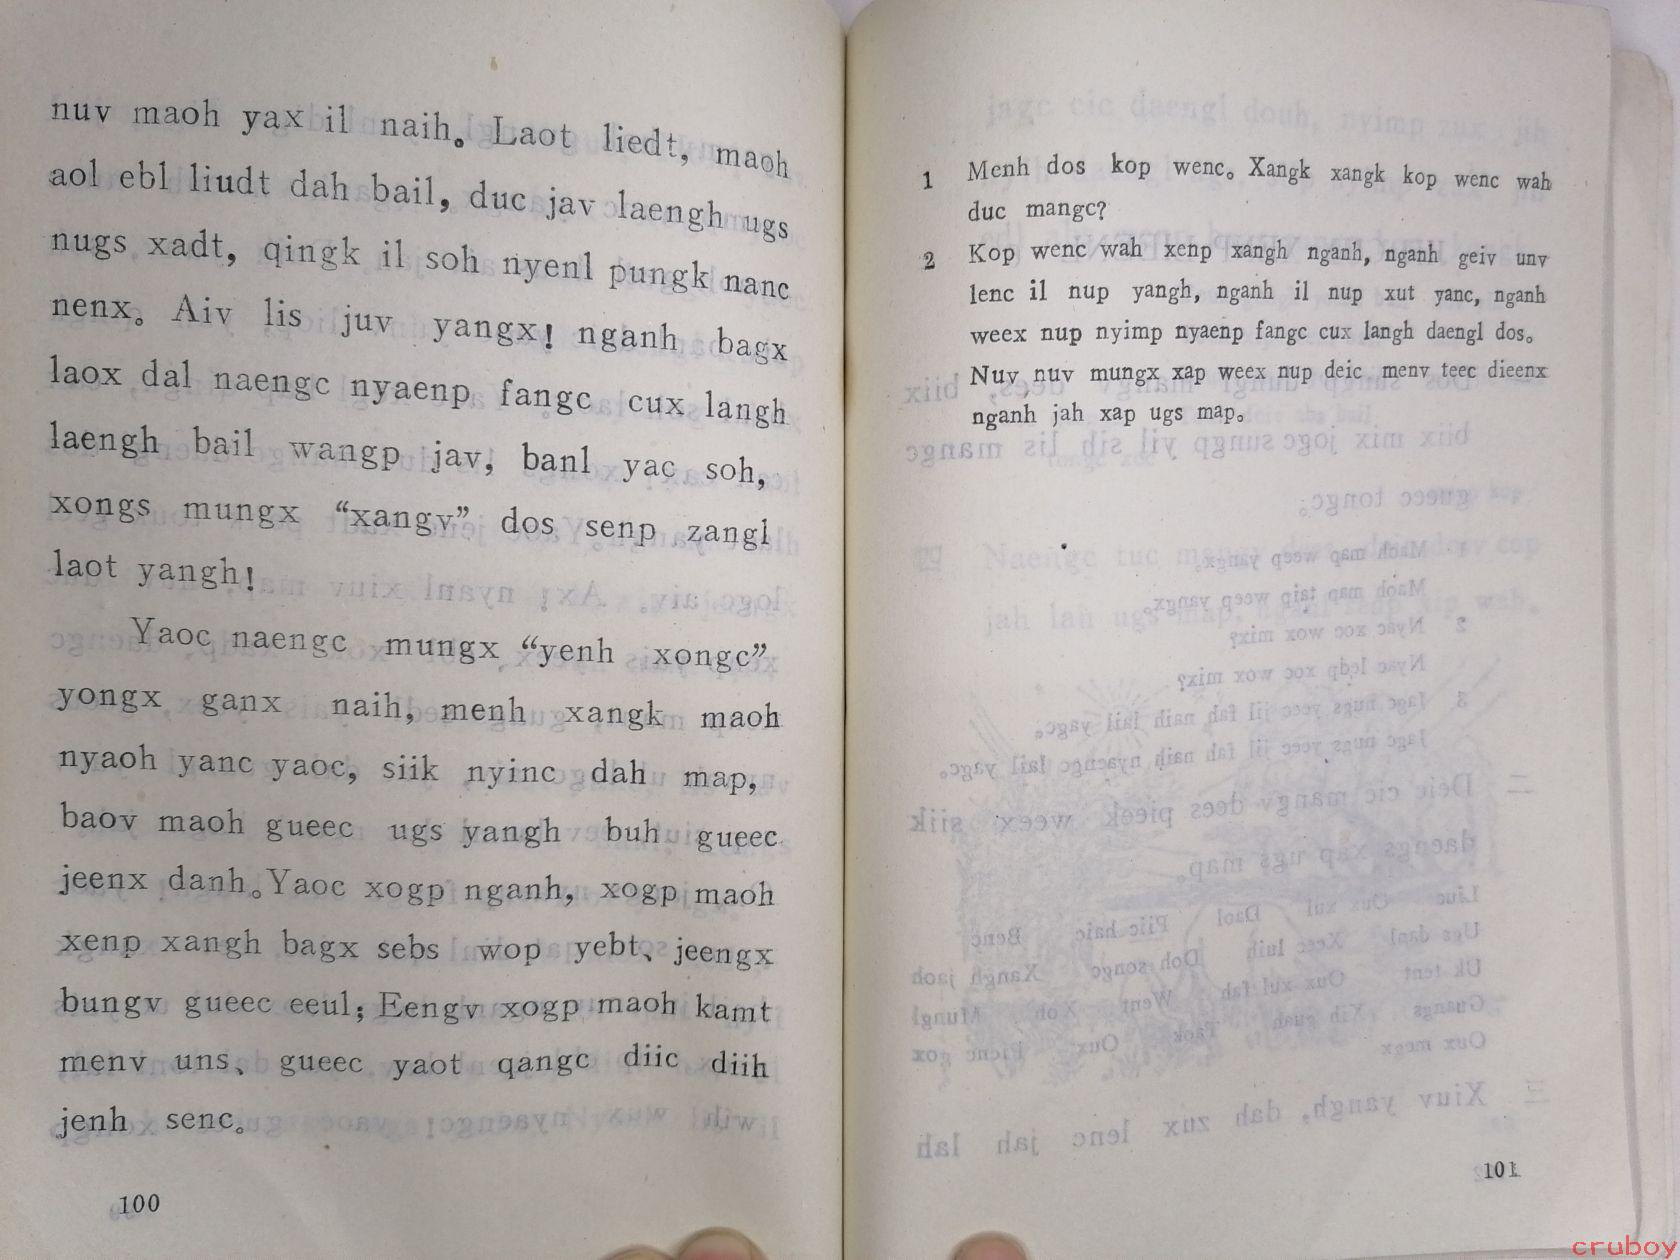 nuv maoh yax il naih。 Laot liedt, maoh
aol ebl liudt dah bail, duc jav laengh ugs
nugs xadt, qingk il soh nyenl pungk nanc
nenx。 Aiv lis juv yangx! nganh bagx
laox dal naengc nyaenp fangc cux langh
laengh bail wangp jav, banl yac soh,
xongs mungx “xangv” dos senp zangl
laot yangh!
Yaoc naengc mungx “yenh xongc”
yongx ganx naih, menh xangk maoh
nyaoh yanc yaoc, siik nyinc dah map,
baov maoh gueec ugs yangh buh gueec
jeenx danh。Yaoc xogp nganh, xogp maoh
xenp xangh bagx sebs wop yebt、 jeengx
bungv gueec eeul; Eengv xogp maoh kamt
menv uns、 gueec yaot qangc diic diih
jenh senc。
100
1 Menh dos kop wenc。 Xangk xangk kop wenc wah
duc mangc?
2 Kop wenc wah xenp xangh nganh, nganh geiv unv
lenc il nup yangh, nganh il nup xut yanc, nganh
weex nup nyimp nyaenp fangc cux langh daengl dos。
Nuv nuv mungx xap weex nup deic menv teec dieenx
nganh jah xap ugs map。
101
cruboy